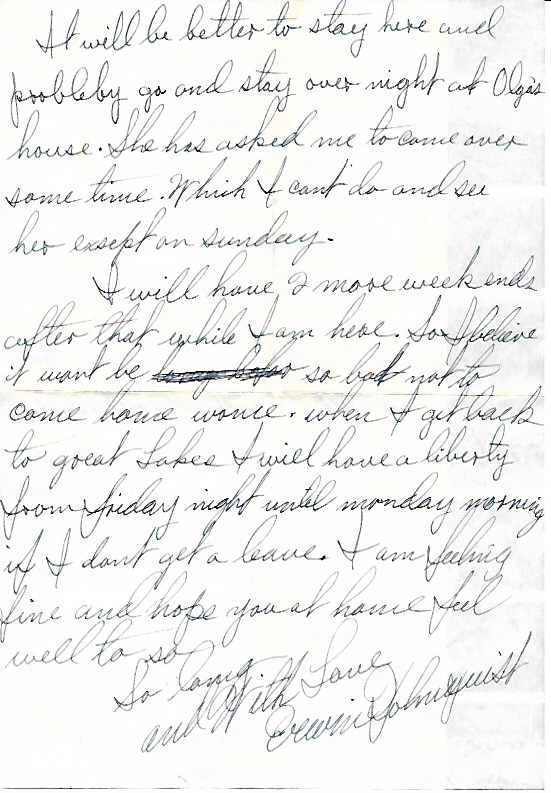 It will be better to stay here and
probleby go and stay over night at Olga's
house. She has asked me to come over
some time. Which I can't do and see
her exsept on sunday.
I will have 2 more week ends
after that while I am here. So I believe
it wont be so bad not to
come home wonce. when I get back
to great Lakes I will have a liberty
from friday night until monday morning
if I dont get a leave. I am feeling
fine and hope you at home feel
well to so
So long
and With Love
Erwin